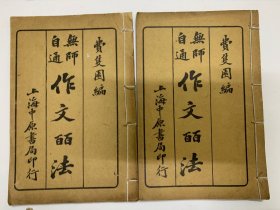 費隻園編
無師
自通
作文皕法
上海中原書局印行
費隻園編
無師
自通
作文皕法
上海中原書局印行